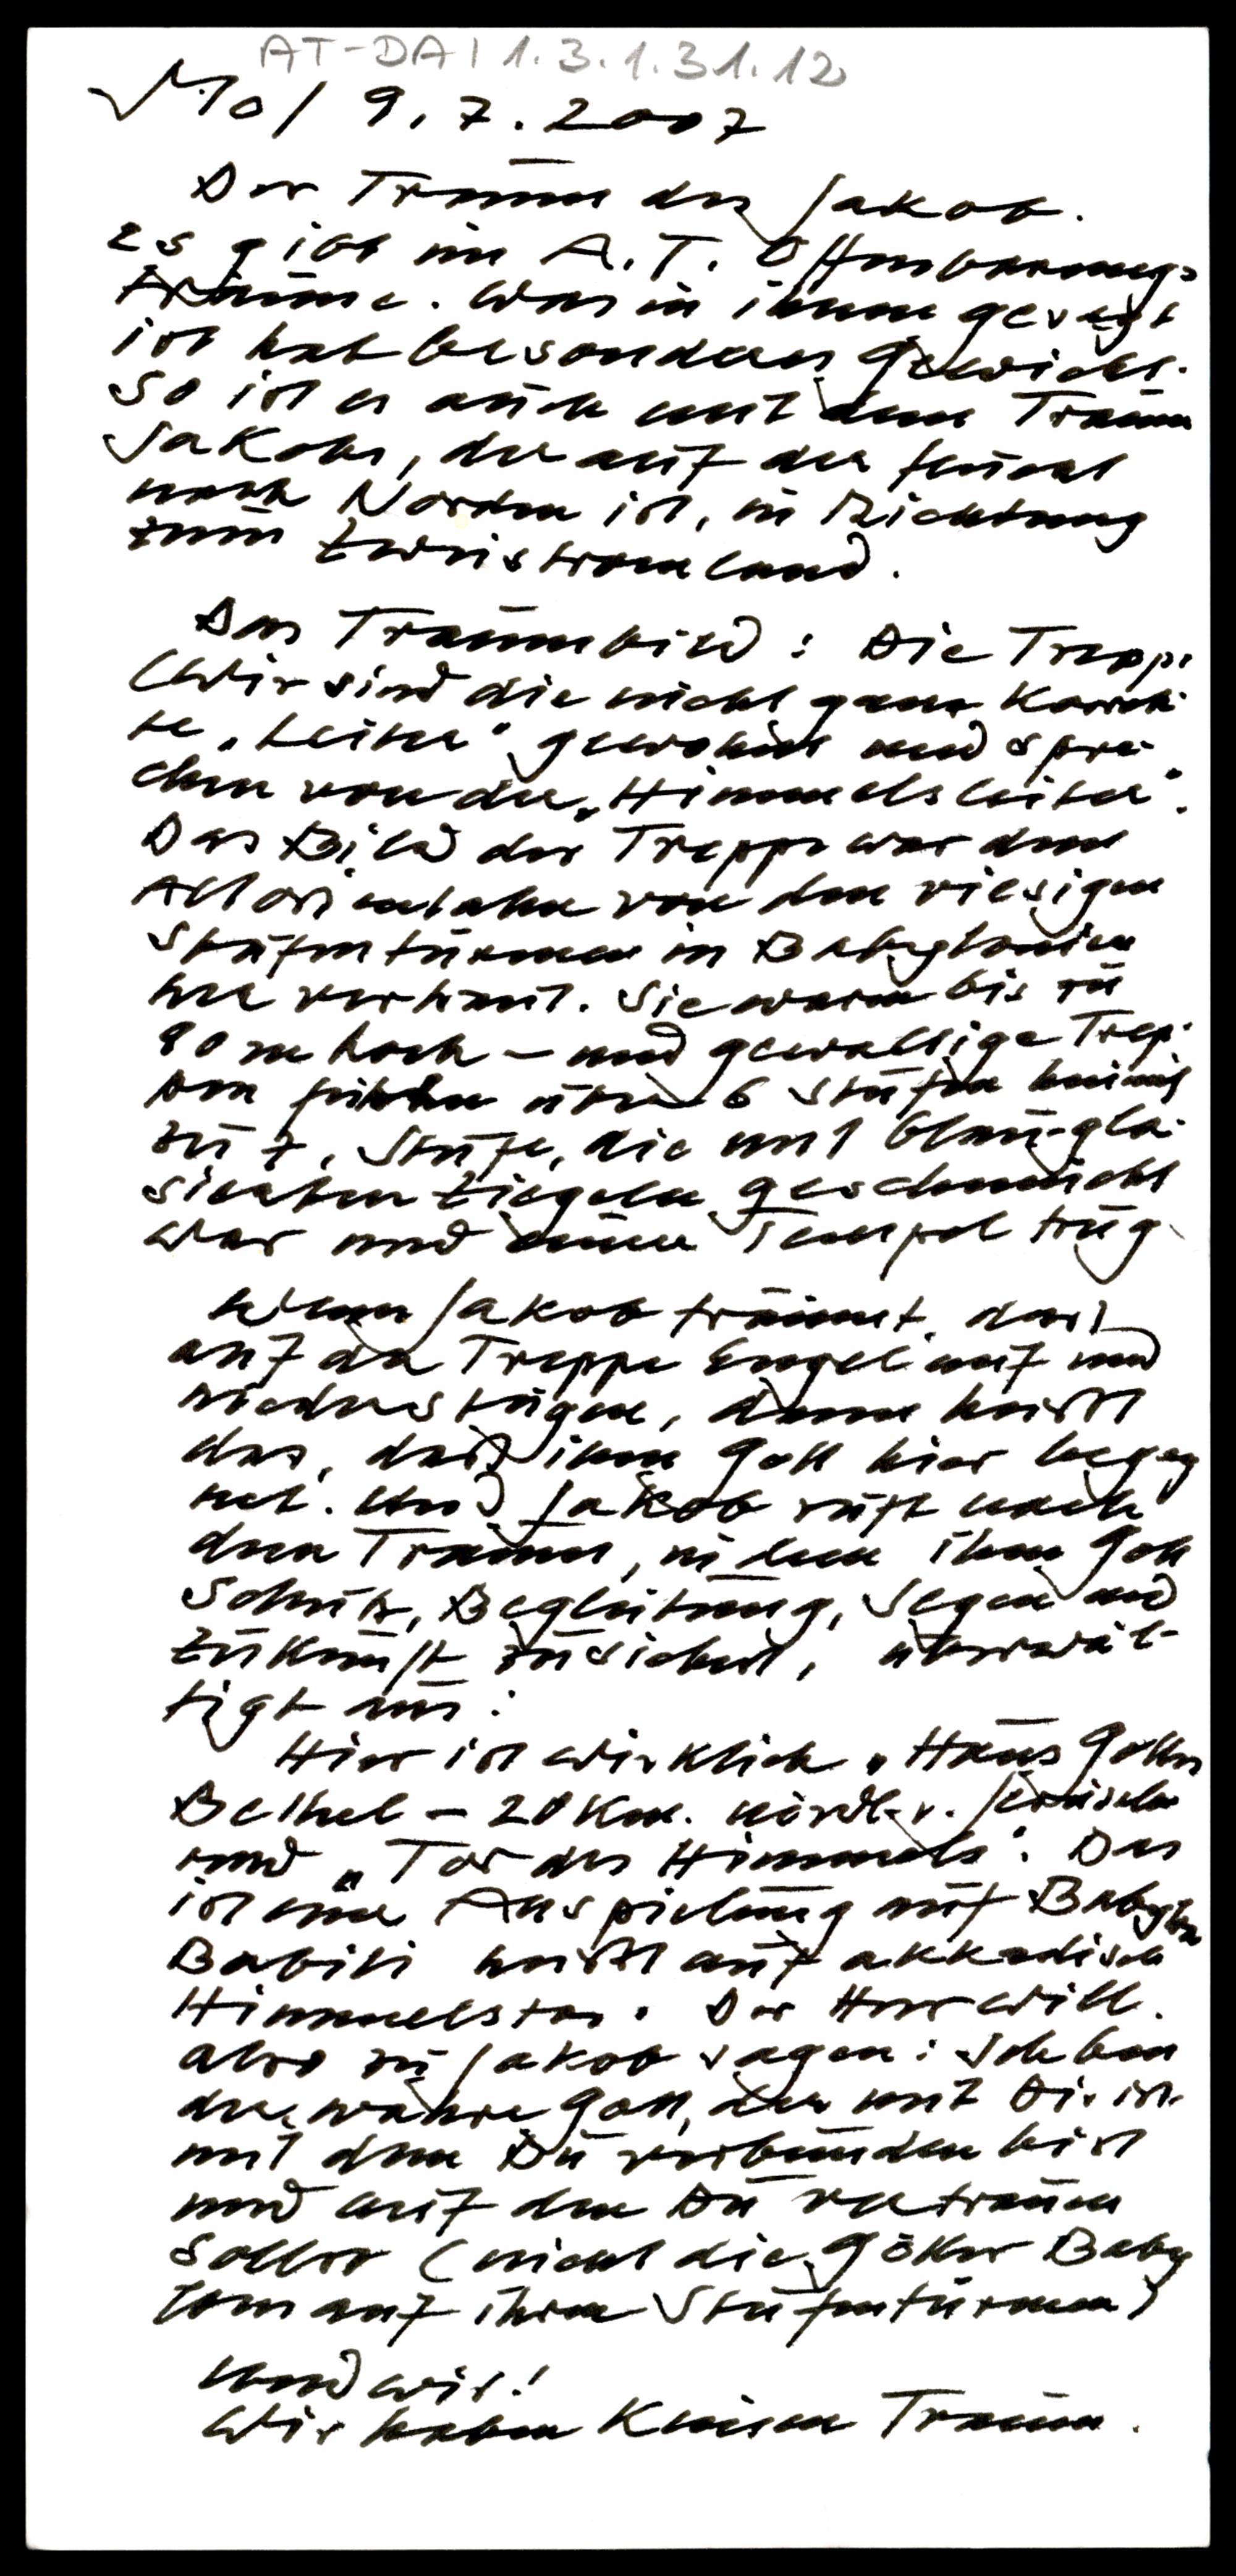 AT-DA 1.3.1.31.12
Mo/ 9.7.2007
Der Traum des Jakob.
Es gibt im A.T. Offenbarungs-
träume. Was in ihnen gesagt
ist hat besonderes Gewicht.
So ist es auch mit dem Traum
Jakobs, der auf der Flucht
nach Norden ist, in Richtung
zum Zweistromland.
Das Traumbild: Die Treppe
(Wir sind die nicht ganz korrek-
te „Leiter" gewohnt und spre-
chen von der „Himmelsleiter".
Das Bild der Treppe war dem
Altorientalen von den riesigen
Stufentürmen in Babylonien
her vertraut. Sie waren bis zu
90 m hoch – und gewaltige Trep-
pen führten über 6 Stufen hinauf
zu 7. Stufe, die mit blau-gla-
sierten Ziegeln geschmückt
war und einen Tempel trug.
Wenn Jakob träumt, dass
auf der Treppe Engel auf und
niedersteigen, dann heisst
das, dass ihm Gott hier begeg
net. Und Jakob ruft nach
dem Traum, in dem ihm Gott
Schutz, Begleitung, Segen und
Zukunft zusichert, überwäl-
tigt aus:
Hier ist wirklich „Haus Gottes
Bethel – 20 km. nördl. v. Jerusalem
und „Tor des Himmels". Das
ist eine Anspielung auf Babylon
Babili heißt auf akkadisch
Himmelstor. Der Herr will
also zu Jakob sagen: Ich bin
der wahre Gott, der mit Dir ist
mit dem Du verbunden bist
und auf den Du vertrauen
sollst (nicht die Götter Baby
lons auf ihren Stufentürmen)
Und wir!
Wir haben keinen Traum.